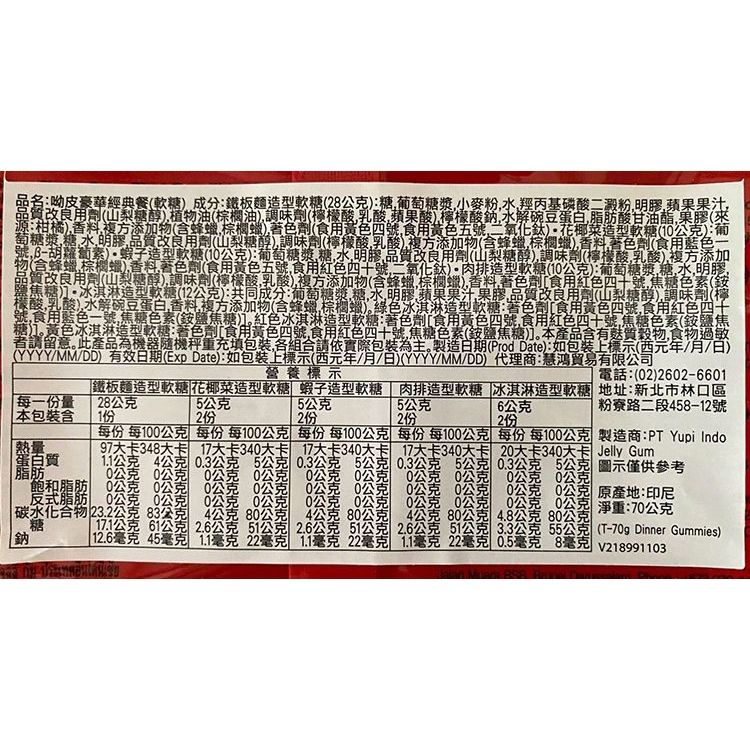 品名:呦皮豪華經典餐(軟糖) 成分:鐵板麵造型軟糖(28公克):糖,葡萄糖漿,小麥粉,水,羥丙基磷酸二澱粉,明膠,蘋果果汁,
品質改良用劑(山梨糖醇),植物油(棕櫚油),調味劑(檸檬酸,乳酸,蘋果酸),檸檬酸鈉,水解碗豆蛋白,脂肪酸甘油酯,果膠(來
源:柑橘),香料,複方添加物(含蜂蠟,棕櫚蠟),著色劑(食用黃色四號,食用黃色五號,二氧化鈦)•花椰菜造型軟糖(10公克):葡
萄糖漿,糖,水,明膠,品質改良用劑(山梨糖醇),調味劑(檸檬酸,乳酸),複方添加物(含蜂蠟,棕櫚蠟),香料,著色劑(食用藍色一
號,β-胡蘿蔔素)•蝦子造型軟糖(10公克):葡萄糖漿,糖,水,明膠,品質改良用劑(山梨糖醇),調味劑(檸檬酸,乳酸),複方添加
物(含蜂蠟,棕櫚蠟),香料,著色劑(食用黃色五號,食用紅色四十號,二氧化鈦)•肉排造型軟糖(10公克):葡萄糖漿,糖,水,明膠,
品質改良用劑(山梨糖醇),調味劑(檸檬酸,乳酸),複方添加物(含蜂蠟,棕櫚蠟),香料,著色劑[食用紅色四十號,焦糖色素(銨
鹽焦糖)]•冰淇淋造型軟糖(12公克):共同成分:葡萄糖漿,糖,水,明膠,蘋果果汁,果膠,品質改良用劑(山梨糖醇),調味劑(檸
檬酸,乳酸),水解碗豆蛋白,香料,複方添加物(含蜂蠟,棕櫚蠟)。綠色冰淇淋造型軟糖:著色劑[食用黃色四號,食用紅色四十
號,食用藍色一號,焦糖色素(銨鹽焦糖)],紅色冰淇淋造型軟糖:著色劑[食用黃色四號,食用紅色四十號,焦糖色素(銨鹽焦
糖)],黃色冰淇淋造型軟糖:著色劑[食用黃色四號,食用紅色四十號,焦糖色素(銨鹽焦糖)]。本產品含有麩質穀物,食物過敏
者請留意。此產品為機器隨機秤重充填包裝,各組合請依實際包裝為主。製造日期(Prod Date):如包裝上標示(西元年/月/日)
(YYYY/MM/DD) 有效日期(Exp Date):如包裝上標示(西元年/月/日)(YYYY/MM/DD) 代理商:慧鴻貿易有限公司
營養標示 電話:(02)2602-6601
鐵板麵造型軟糖 花椰菜造型軟糖 蝦子造型軟糖 肉排造型軟糖 冰淇淋造型軟糖 地址:新北市林口區
每一份量 28公克 5公克 5公克 5公克 6公克 粉寮路二段458-12號
本包裝含 1份 2份 2份 2份 2份
每份 每100公克 每份 每100公克 每份 每100公克 每份 每100公克 每份 每100公克 製造商:PT Yupi Indo
熱量 97大卡 348大卡 17大卡 340大卡 17大卡 340大卡 17大卡 340大卡 20大卡 340大卡 Jelly Gum
蛋白質 1.1公克 4公克 0.3公克 5公克 0.3公克 5公克 0.3公克 5公克 0.3公克 5公克 圖示僅供參考
脂肪 0公克 0公克 0公克 0公克 0公克 0公克 0公克 0公克 0公克 0公克
飽和脂肪 0公克 0公克 0公克 0公克 0公克 0公克 0公克 0公克 0公克 0公克 原產地:印尼
反式脂肪 0公克 0公克 0公克 0公克 0公克 0公克 0公克 0公克 0公克 0公克
碳水化合物 23.2公克 83公克 4公克 80公克 4公克 80公克 4公克 80公克 4.8公克 80公克 淨重:70公克
糖 17.1公克 61公克 2.6公克 51公克 2.6公克 51公克 2.6公克 51公克 3.3公克 55公克 (T-70g Dinner Gummies)
鈉 12.6毫克 45毫克 1.1毫克 22毫克 1.1毫克 22毫克 1.1毫克 22毫克 0.5毫克 8毫克 V218991103